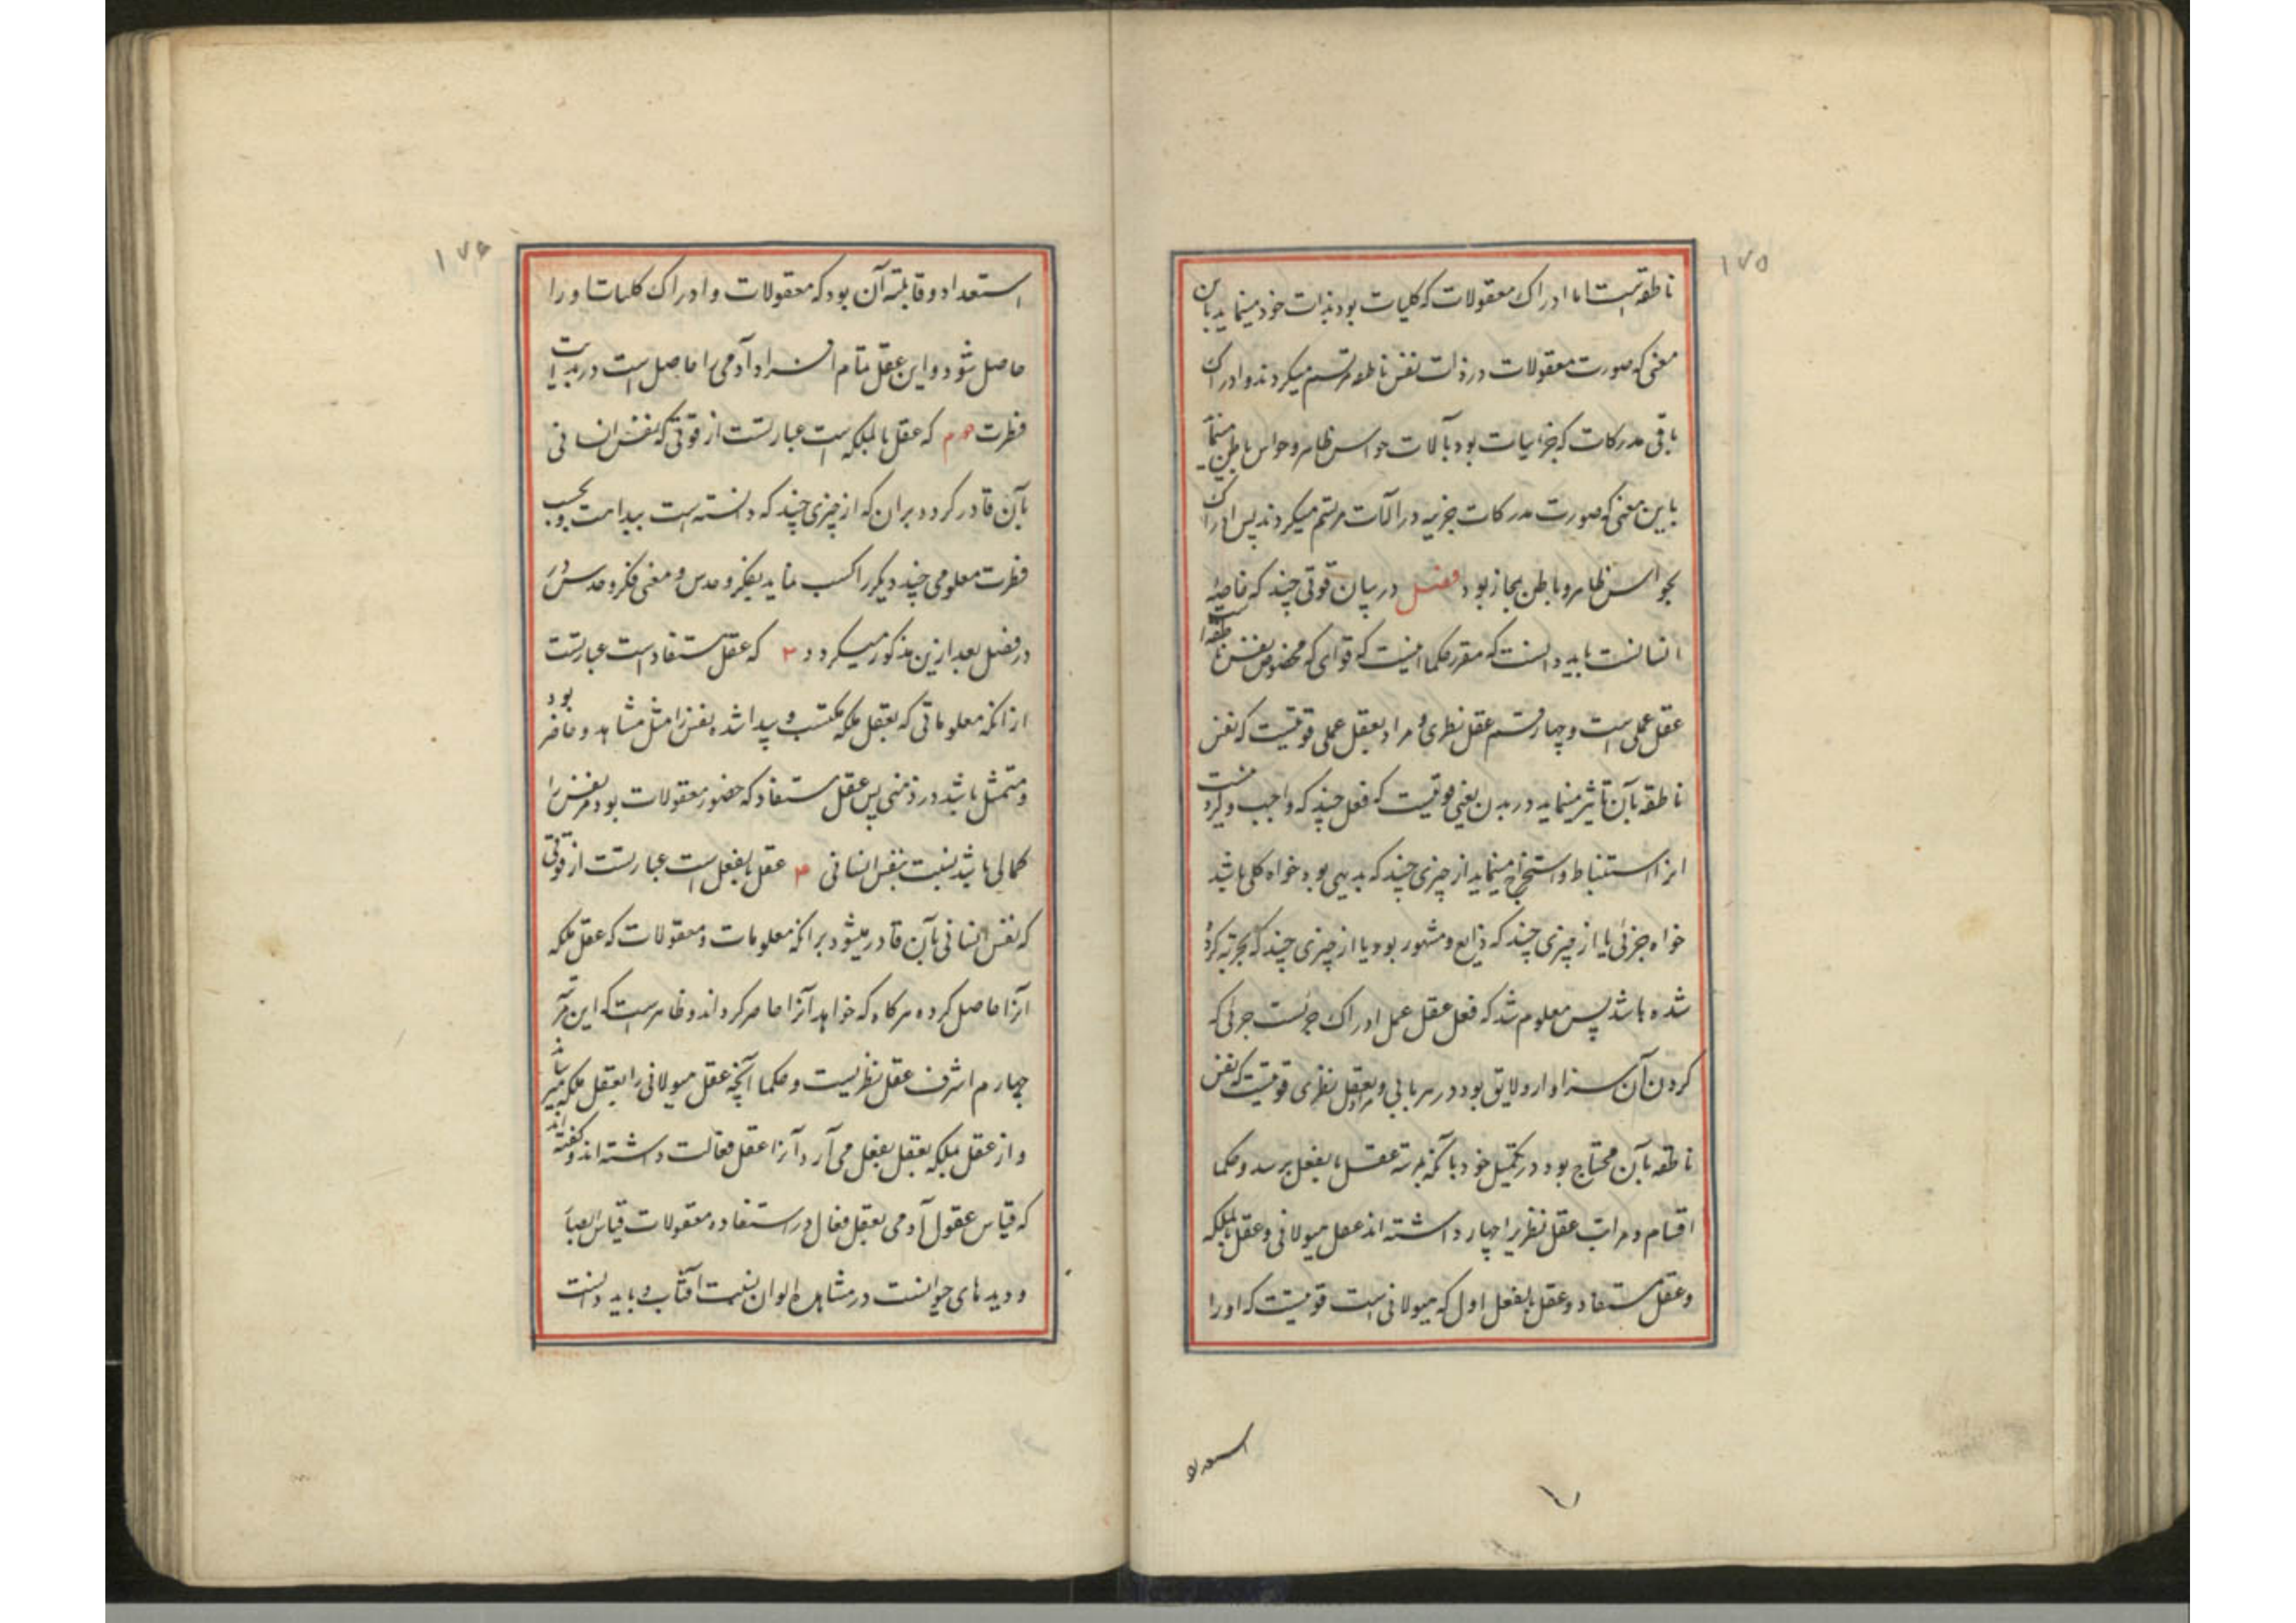 ۱۷۵
ناطقه است اما ادراک معقولات که کلیات بود بذات خود مینماید باین
معنی که صورت معقولات در ذات نفس ناطقه مرتسم میکردند و ادراک
باقی مدرکات که جزئیات بود بآلات حواس ظاهر و حواس باطن مینماید
باین معنی که صورت مدرکات جزئیه در آلات مرتسم میکردند پس ادراک
بحواس ظاهر و باطن بمجاز بود فصل در بیان قوتی چند که خاصهٔ
انسانست باید دانست که مقرر حکما اینست که قوای که مخصوص بنفس ناطقه است
عقل عملی است و چهار قسم عقل نظری و مراد بعقل عملی قوتیست که نفس
ناطقه بآن تأثیر مینماید در بدن یعنی قوتیست که فعل چند که واجب و کرد
انرا استنباط و استخراج مینماید از چیزی چند که بدیهی بود خواه کلی باشد
خواه جزئی یا از چیزی چند که ذایع و مشهور بود یا از چیزی چند که بتجربه کرده
شده باشد پس معلوم شد که فعل عقل عمل ادراک جزئیست جزئی که
کردن آن سزاوار و لایق بود در هر بابی و مراد بعقل نظری قوتیست که نفس
ناطقه بآن محتاج بود در تکمیل خود بآنکه بمرتبه عقل بالفعل برسد و حکما
اقسام و مراتب عقل نظریرا چهار داشته اند عقل هیولانی و عقل بالملکه
و عقل مستفاد و عقل بالفعل اول که هیولانی است قوتیست که او را
استعداد
۱۷۶
استعداد و قابلیته آن بود که معقولات و ادراک کلیات او را
حاصل شود و این عقل تمام افراد آدمی را حاصل است در بدایت
فطرت دوم که عقل بالملکه است عبارتست از قوتی که نفس انسانی
بآن قادر کردد بران که از چیزی چند که دانسته است ببداهت و بحسب
فطرت معلومی چند دیکر را کسب نماید بفکر و حدس و معنی فکر و حدس
در فصل بعد ازین مذکور میکردد ۳ که عقل مستفاد است عبارتست
از انکه معلوماتی که بعقل ملکه مکتسب و پیدا شده نفس را مثل مشاهد و حاضر بود
و متمثل باشد در ذهنی پس عقل مستفاد که حضور معقولات بود مر نفس را
کمالی باشد بنسبت بنفس انسانی ۴ عقل بالفعل است عبارتست از قوتی
که نفس انسانی بآن قادر میشود بر انکه معلومات و معقولات که عقل ملکه
آنرا حاصل کرده هرکاه که خواهد آنرا حاضر کرداند و ظاهرست که این مرتبه
چهارم اشرف عقل نظریست و حکما آنچه عقل هیولانی را بعقل ملکه میرساند
و از عقل ملکه بعقل بفعل می آرد آنرا عقل فعالت داشته اند و کفته اند
که قیاس عقول آدمی بعقل فعال در استفاده معقولات قیاس ابصار
و دیدهای حیوانست در مشاهده الوان بنسبت آفتاب و باید دانست